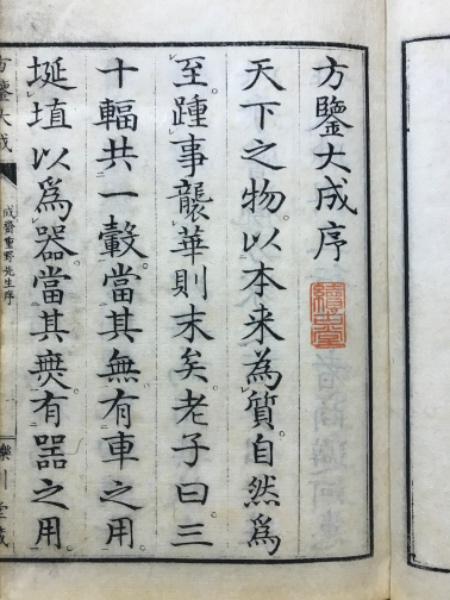 方鑒大成序
天下之物。以本来為質。自然爲
至。踵事襲華則末矣。老子曰。三
十輻共一轂。當其無。有車之用。
埏埴以爲器。當其無。有器之用。
方鑒大成
成齋重野先生序